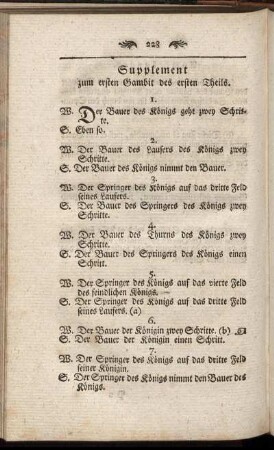 228
Supplement
zum ersten Gambit des ersten Theils.
1.
W. Der Bauer des Königs geht zwey Schrit-
te.
S. Eben so.
2.
W. Der Bauer des Laufers des Königs zwey
Schritte.
S. Der Bauer des Königs nimmt den Bauer.
3.
W. Der Springer des Königs auf das dritte Feld
seines Laufers.
S. Der Bauer des Springers des Königs zwey
Schritte.
4.
W. Der Bauer des Thurns des Königs zwey
Schritte.
S. Der Bauer des Springers des Königs einen
Schritt.
5.
W. Der Springer des Königs auf das vierte Feld
des feindlichen Königs.
S. Der Springer des Königs auf das dritte Feld
seines Laufers. (a)
6.
W. Der Bauer der Königin zwey Schritte. (b)
S. Der Bauer der Königin einen Schritt.
7.
W. Der Springer des Königs auf das dritte Feld
seiner Königin.
S. Der Springer des Königs nimmt den Bauer des
Königs.